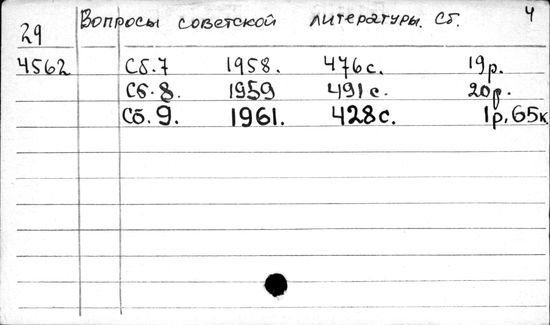 4
29 Вопросы советской литературы. Сб.
4562 Сб.7 1958. 476с. 19р.
Сб.8. 1959 491с. 20р.
Сб.9. 1961. 428с. 1р.65к